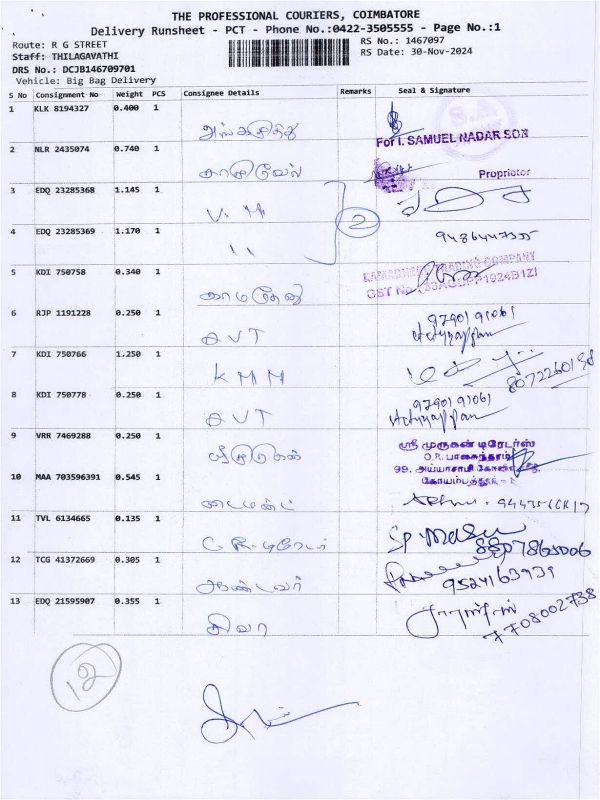 THE PROFESSIONAL COURIERS, COIMBATORE
Delivery Runsheet - PCT - Phone No.:0422-3505555 - Page No.:1
Route: R G STREET
RS No.: 1467097
Staff: THILAGAVATHI
RS Date: 30-Nov-2024
DRS No.: DCJB146709701
Vehicle: Big Bag Delivery
S No Consignment No Weight PCS Consignee Details Remarks Seal & Signature
1 KLK 8194327 0.400 1
S.A
For I. SAMUEL NADAR SON
2 NLR 2435074 0.740 1
Proprietor
3 EDQ 23285368 1.145 1
V. M
2
4 EDQ 23285369 1.170 1
" 9486447355
5 KDI 750758 0.340 1
காமதேனு
KAMADHENU TRADING COMPANY
GST No.
6 RJP 1191228 0.250 1
AVT
9790191061
7 KDI 750766 1.250 1
KMM
8072260198
8 KDI 750778 0.250 1
AVT
9790191061
9 VRR 7469288 0.250 1
ஸ்ரீமுருகன்
ஸ்ரீ முருகன் டிரேடர்ஸ்
O.R. பாஸ்கந்தராம்
99, அய்யாசாமி கோவில்
கோயம்புத்தூர் - 1
10 MAA 703596391 0.545 1
டைமண்ட்
11 TVL 6134665 0.135 1
SP. Masu
12 TCG 41372669 0.305 1
ஆண்டவர்
9524163939
13 EDQ 21595907 0.355 1
சிவா
7708002738
12